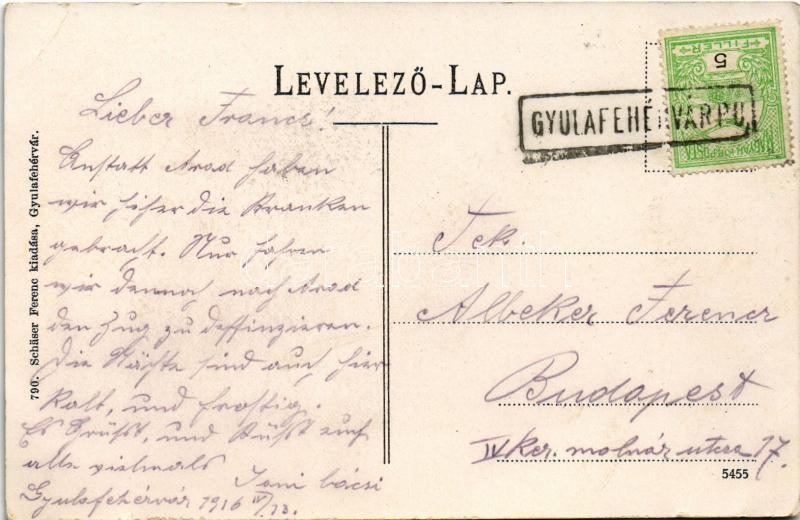 LEVELEZŐ-LAP.
FILLER
5
MAGYAR KIR. POSTA
GYULAFEHÉRVÁR P.U.
790. Schäser Ferenc kiadása, Gyulafehérvár.
Lieber Francs!
Anstatt Arad haben
wir hiher die Kranken
gebracht. Nur fahren
wir dennoch nach Arad
den Zug zu deffinzieren.
Die Nächte sind auch hier
kalt, und frostig.
Es Grüsst, und Küsst euch
alle vielmals
Toni bácsi
Gyulafehérvár 1916 IV/13.
Tek.
Albeker Ferencz
Budapest
IV ker. molnár utcza 17.
5455
darabanth